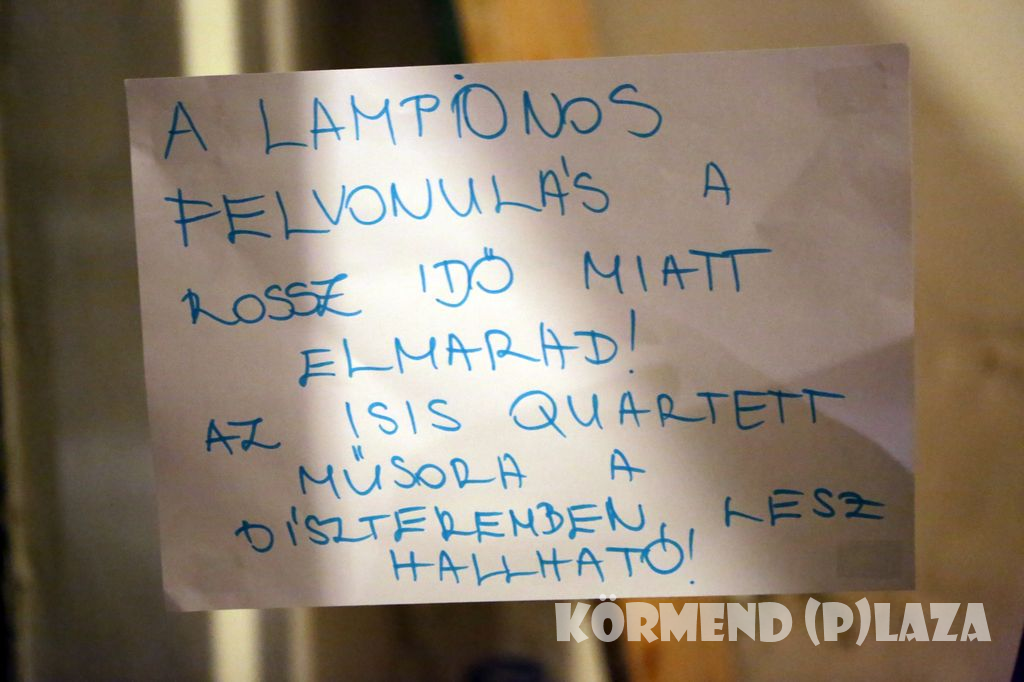 A LAMPIONOS
FELVONULÁS A
ROSSZ IDŐ MIATT
ELMARAD!
AZ ISIS QUARTETT
MŰSORA A
DÍSZTEREMBEN LESZ
HALLHATÓ!
KÖRMEND (P)LAZA